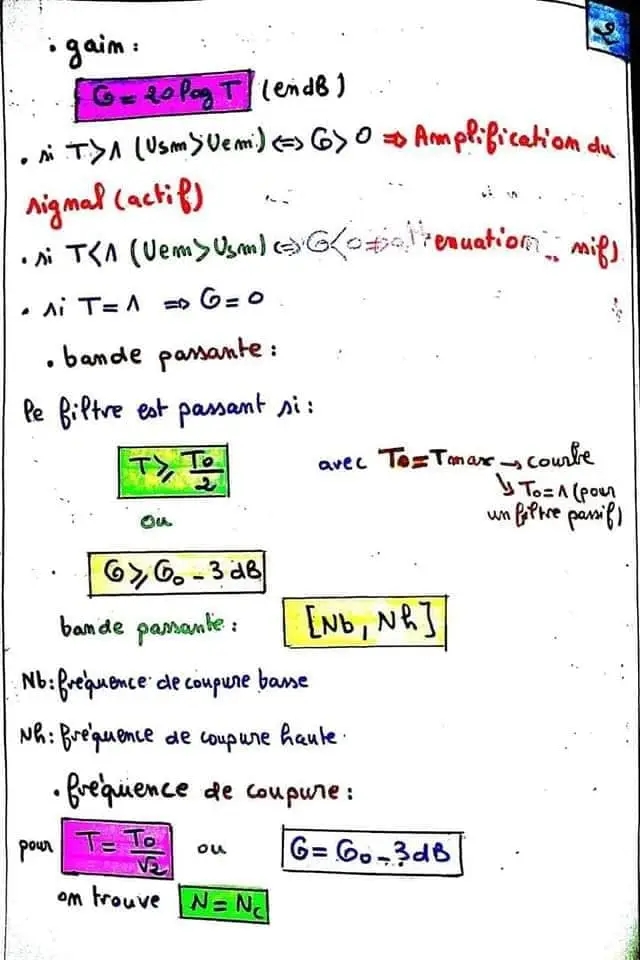 2
• gain :
G = 20 log T (en dB)
• si T > 1 (Usm > Uem) ⇔ G > 0 ⇒ Amplification du
signal (actif)
• si T < 1 (Uem > Usm) ⇔ G < 0 ⇒ enuation sif)
• si T = 1 ⇒ G = 0
• bande passante :
le filtre est passant si :
T ≥ To/2 avec To = Tmax → courbe
↳ To = 1 (pour
un filtre passif)
ou
G ≥ Go - 3 dB
bande passante : [Nb, Nh]
Nb : fréquence de coupure basse
Nh : fréquence de coupure haute.
• fréquence de coupure :
pour T = To/√2 ou G = Go - 3 dB
on trouve N = Nc